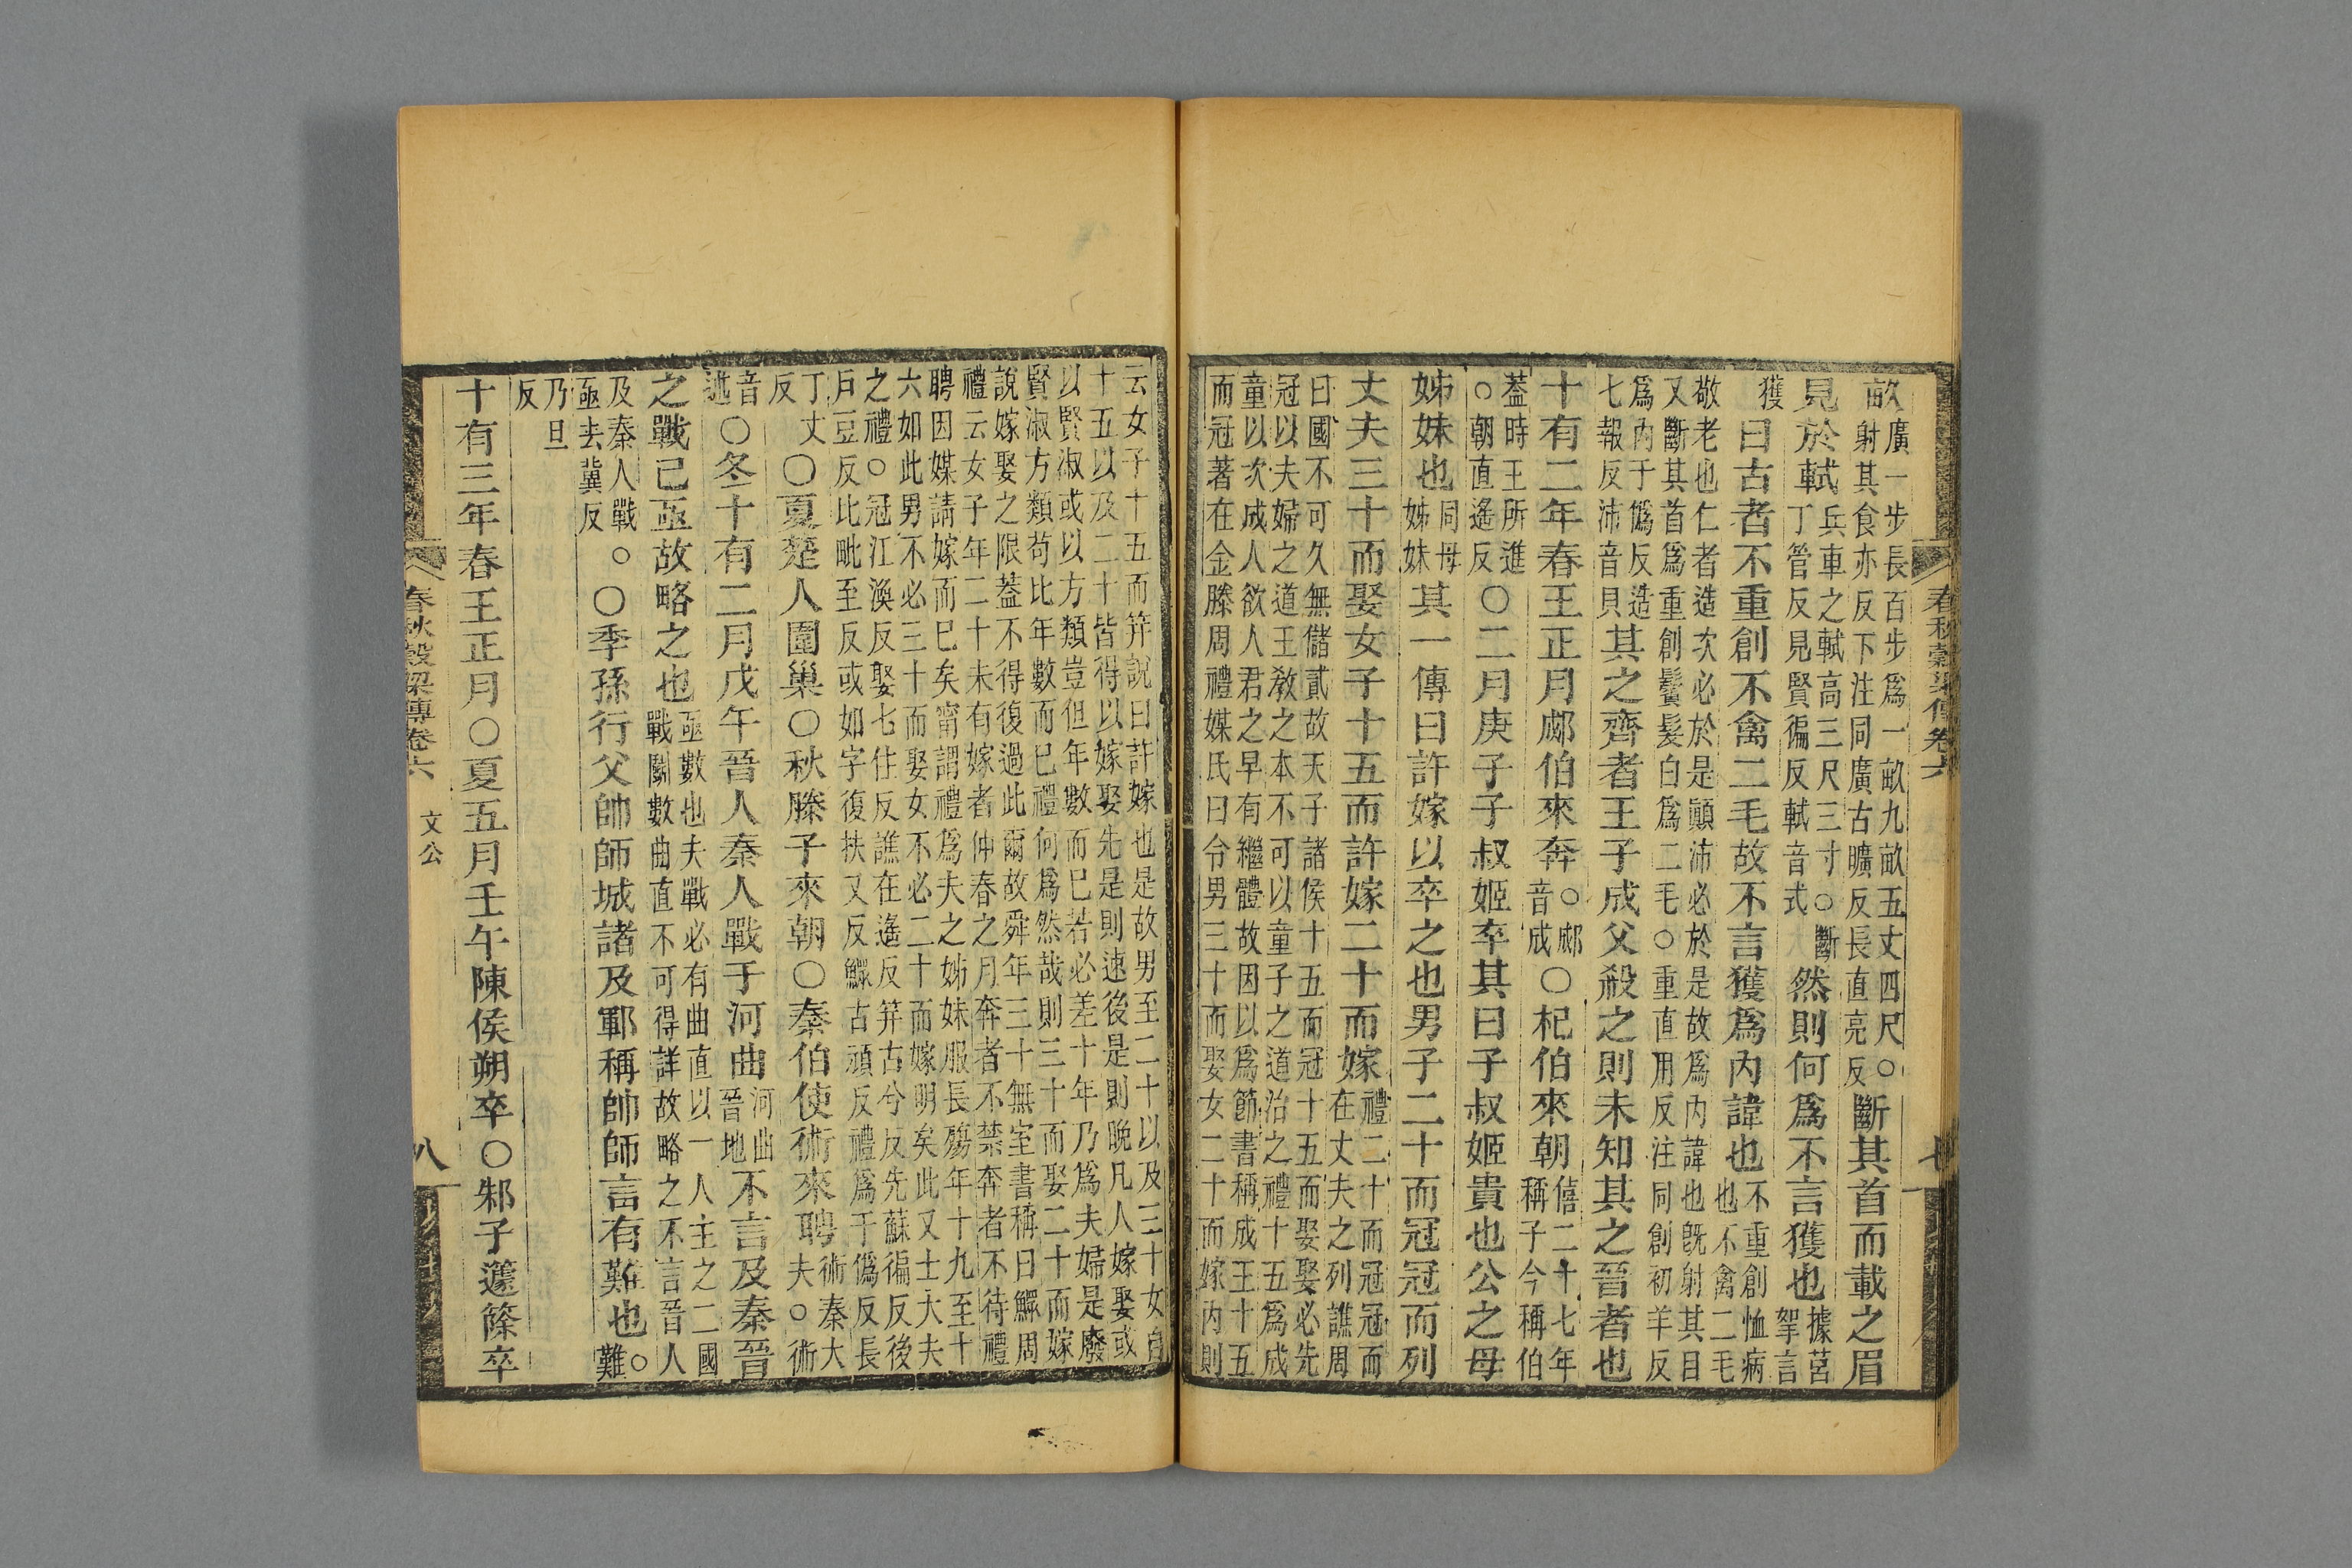 春秋穀梁傳卷六 七
畝廣一步長百步爲一畝九畝五丈四尺○射其食亦反下注同廣古曠反長直亮反斷其首而載之眉
見於軾兵車之軾高三尺三寸○斷丁管反見賢徧反軾音式然則何爲不言獲也據莒挐言
獲曰古者不重創不禽二毛故不言獲爲內諱也不重創恤病也不禽二毛
敬老也仁者造次必於是顚沛必於是故爲內諱也旣射其目又斷其首爲重創鬢髮白爲二毛○重直用反注同創初羊反
爲內于僞反造七報反沛音貝其之齊者王子成父殺之則未知其之晉者也
十有二年春王正月郕伯來奔○郕音成○杞伯來朝僖二十七年稱子今稱伯
蓋時王所進○朝直遙反○二月庚子子叔姬卒其曰子叔姬貴也公之母
姊妹也同母姊妹其一傳曰許嫁以卒之也男子二十而冠冠而列
丈夫三十而娶女子十五而許嫁二十而嫁禮二十而冠冠而在丈夫之列譙周
曰國不可久無儲貳故天子諸侯十五而冠十五而娶娶必先冠以夫婦之道王敎之本不可以童子之道治之禮十五爲成
童以次成人欲人君之早有繼體故因以爲節書稱成王十五而冠著在金縢周禮媒氏曰令男三十而娶女二十而嫁內則
云女子十五而笄說曰許嫁也是故男至二十以及三十女自十五以及二十皆得以嫁娶先是則速後是則晚凡人嫁娶或
以賢淑或以方類豈但年數而已若必差十年乃爲夫婦是廢賢淑方類苟比年數而已禮何爲然哉則三十而娶二十而嫁
說嫁娶之限蓋不得復過此爾故舜年三十無室書稱曰鰥周禮云女子年二十未有嫁者仲春之月奔者不禁奔者不待禮
聘因媒請嫁而已矣甯謂禮爲夫之姊妹服長殤年十九至十六如此男不必三十而娶女不必二十而嫁明矣此又士大夫
之禮○冠江渙反娶七住反譙在遙反笄古兮反先蘇徧反後戶豆反比毗至反或如字復扶又反鰥古頑反禮爲于僞反長
丁丈反○夏楚人圍巢○秋滕子來朝○秦伯使術來聘術秦大夫○術
音述○冬十有二月戊午晉人秦人戰于河曲河曲晉地不言及秦晉
之戰已亟故略之也亟數也夫戰必有曲直以一人主之二國戰鬭數曲直不可得詳故略之不言晉人
及秦人戰○亟去冀反○季孫行父帥師城諸及鄆稱帥師言有難也○難
乃旦反
十有三年春王正月○夏五月壬午陳侯朔卒○邾子蘧篨卒
春秋穀梁傳卷六 文公 八